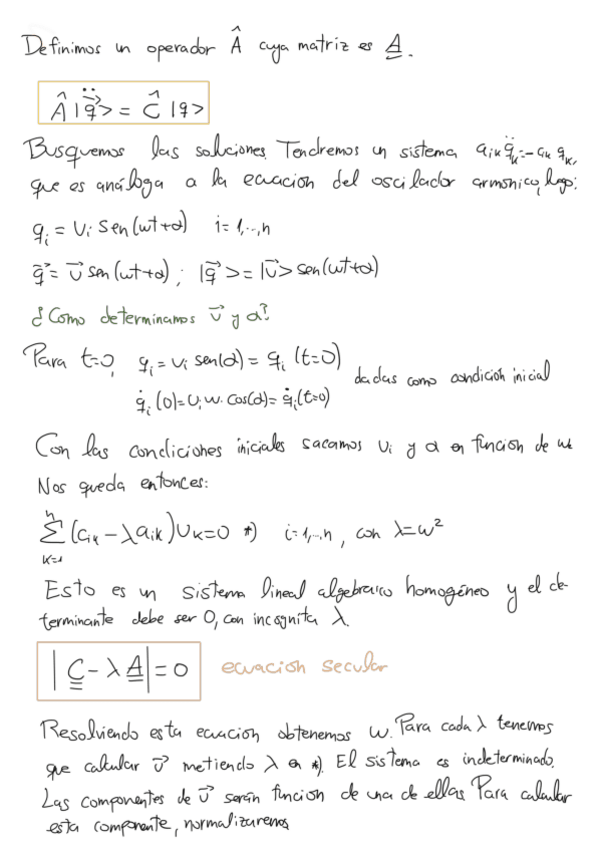 Definimos un operador Â cuya matriz es A.
Â|q̈⃗> = Ĉ|q>
Busquemos las soluciones. Tendremos un sistema aᵢₖq̈ₖ=-cᵢₖ qₖ,
que es análoga a la ecuación del oscilador armónico, luego:
qᵢ = Uᵢ sen(ωt+α) i=1,..,n
q⃗ = U⃗ sen(ωt+α); |q⃗> = |U⃗> sen(ωt+α)
¿Como determinamos U⃗ y α?
Para t=0, qᵢ = Uᵢ sen(α) = qᵢ (t=0)
dadas como condición inicial
q̇ᵢ(0)=Uᵢ ω. cos(α)= q̇ᵢ(t=0)
Con las condiciones iniciales sacamos Uᵢ y α en función de
Nos queda entonces:
n
∑ (cᵢₖ - λaᵢₖ)Uₖ=0 *) i=1,..,n, con λ=ω²
k=1
Esto es un sistema lineal algebraico homogéneo y el de-
terminante debe ser 0, con incognita λ.
|C - λA| = 0 ecuación secular
Resolviendo esta ecuación obtenemos ω. Para cada λ tenemos
que calcular U⃗ metiendo λ en *). El sistema es indeterminado.
Las componentes de U⃗ serán función de una de ellas. Para calcular
esta componente, normalizaremos